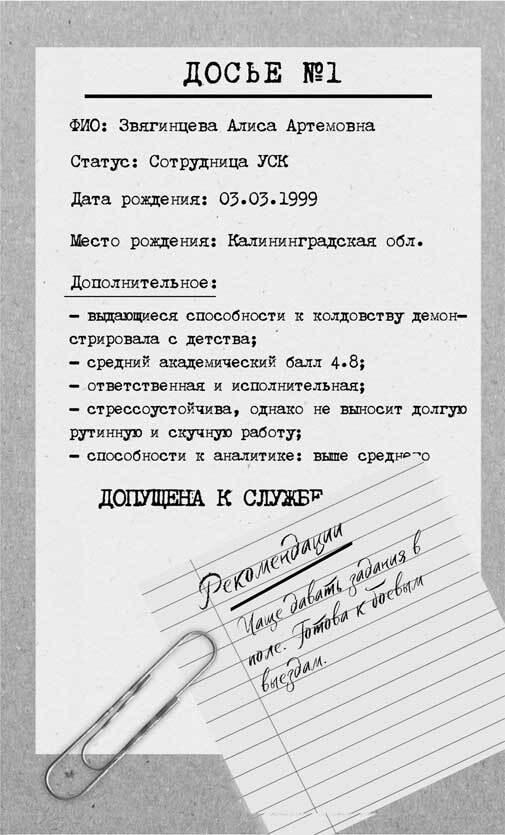 ДОСЬЕ №1
ФИО: Звягинцева Алиса Артемовна
Статус: Сотрудница УСК
Дата рождения: 03.03.1999
Место рождения: Калининградская обл.
Дополнительное:
– выдающиеся способности к колдовству демон-
стрировала с детства;
– средний академический балл 4.8;
– ответственная и исполнительная;
– стрессоустойчива, однако не выносит долгую
рутинную и скучную работу;
– способности к аналитике: выше среднего
ДОПУЩЕНА К СЛУЖБЕ
Рекомендации
Чаще давать задания в
поле. Готова к боевым
выездам.